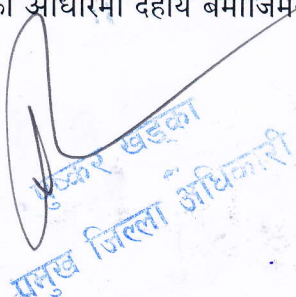 आधारमा देहाय बमोजिम
पुष्कर खड्का
प्रमुख जिल्ला अधिकारी